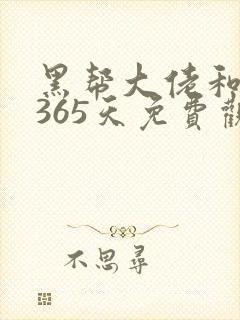 黑帮大佬和
365天免費觀
不思尋